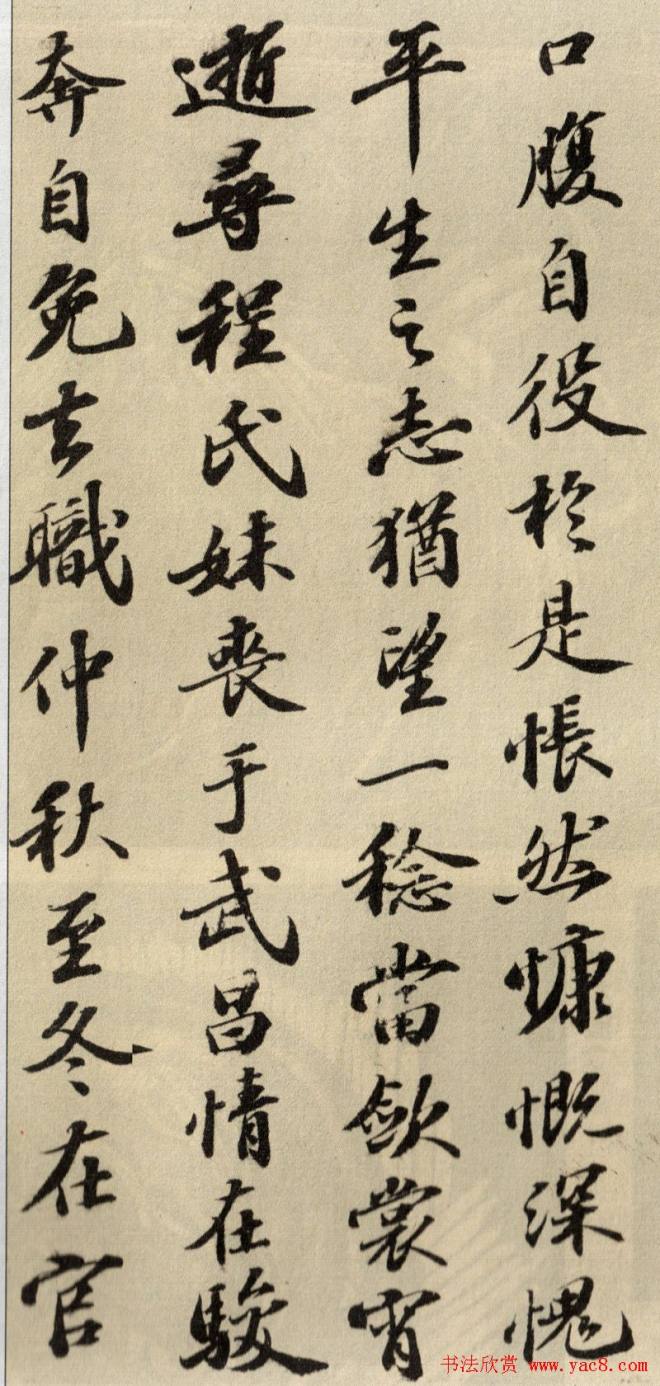 口腹自役於是悵然慷慨深愧
平生之志猶望一稔當斂裳宵
逝尋程氏妹喪于武昌情在駿
奔自免去職仲秋至冬在官
书法欣赏 www.yac8.com